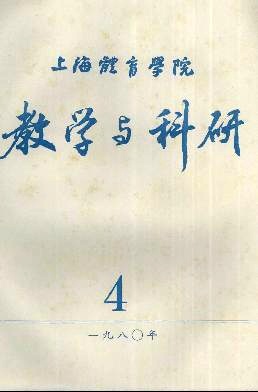 上海體育學院
教学与科研
4
一九八〇年